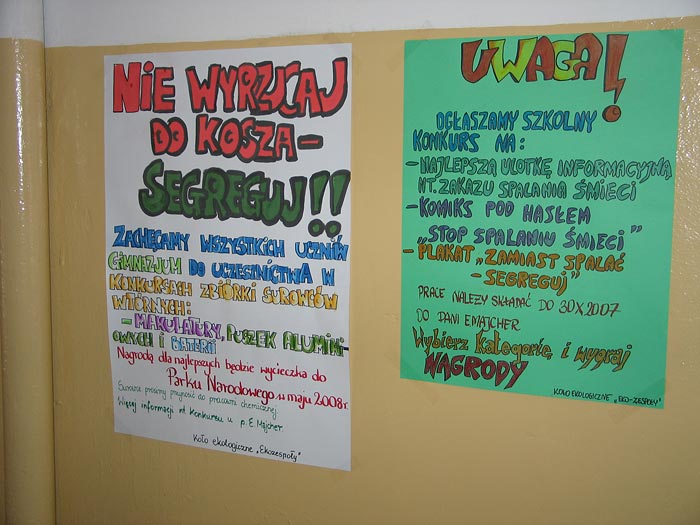 NIE WYRZUCAJ
DO KOSZA –
SEGREGUJ!!
ZACHĘCAMY WSZYSTKICH UCZNIÓW
GIMNAZJUM DO UCZESTNICTWA W
KONKURSACH ZBIÓRKI SUROWCÓW
WTÓRNYCH:
– MAKULATURY, PUSZEK ALUMINI-
OWYCH I BATERII
Nagrodą dla najlepszych będzie wycieczka do
Parku Narodowego w maju 2008r.
Surowce prosimy przynosić do pracowni chemicznej.
Więcej informacji nt konkursu u p. E. Majcher.
Koło ekologiczne „Ekozespoły"
UWAGA!
OGŁASZAMY SZKOLNY
KONKURS NA:
– NAJLEPSZĄ ULOTKĘ INFORMACYJNĄ
NT. ZAKAZU SPALANIA ŚMIECI
– KOMIKS POD HASŁEM
„STOP SPALANIU ŚMIECI"
– PLAKAT „ZAMIAST SPALAĆ
– SEGREGUJ"
PRACE NALEŻY SKŁADAĆ DO 30X2007
DO PANI E.MAJCHER
Wybierz kategorię i wygraj
NAGRODY
KOŁO EKOLOGICZNE „EKO-ZESPOŁY"